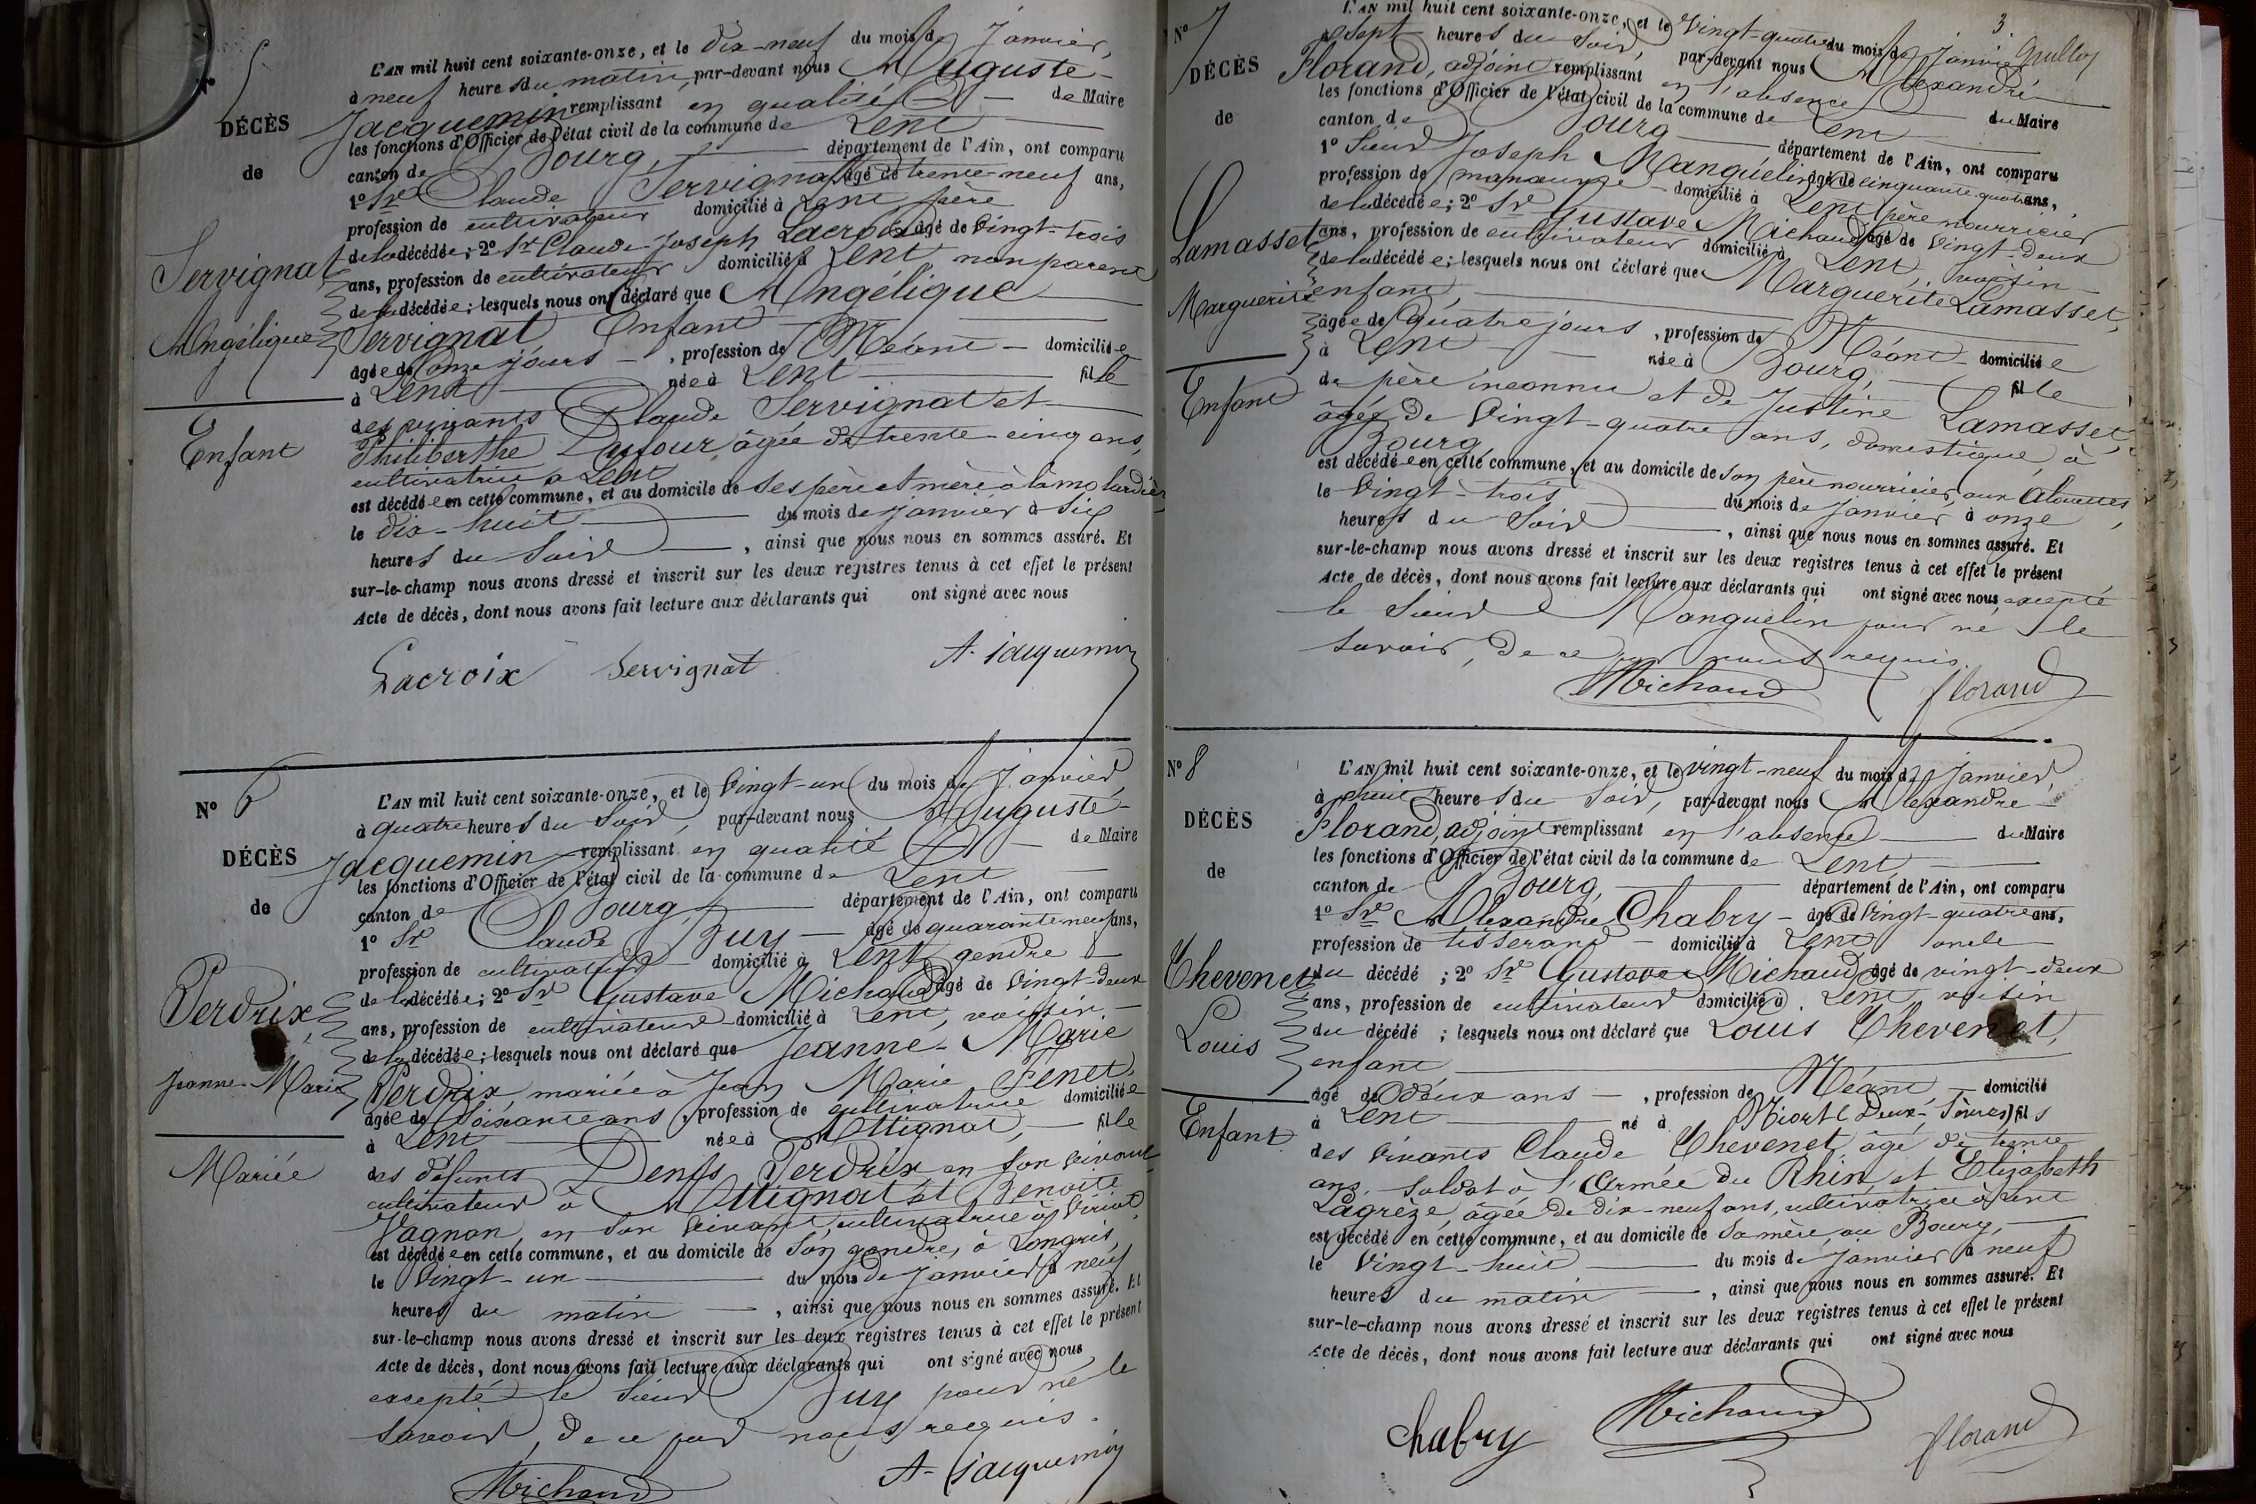 5
DÉCÈS
de
Servignat
Angélique
Enfant
L'AN mil huit cent soixante-onze, et le dix-neuf du mois de Janvier,
à neuf heures du matin, par-devant nous Auguste
Jacquemin remplissant en qualité de Maire
les fonctions d'Officier de l'état civil de la commune de Lent
canton de Bourg, département de l'Ain, ont comparu
1° Sr Claude Servignat âgé de trente-neuf ans,
profession de cultivateur domicilié à Lent, père
de la décédée; 2° Sr Claude-Joseph Lacroix âgé de vingt-trois
ans, profession de cultivateur domicilié à Lent, non parent
de la décédée; lesquels nous ont déclaré que Angélique
Servignat Enfant
âgée de onze jours, profession de Néant domiciliée
à Lent née à Lent fille
des vivants Claude Servignat et
Philiberthe Dufour, âgée de trente-cinq ans,
cultivatrice à Lent
est décédée en cette commune, et au domicile de ses père et mère à la
le dix-huit du mois de Janvier à six
heures du soir, ainsi que nous nous en sommes assuré. Et
sur-le-champ nous avons dressé et inscrit sur les deux registres tenus à cet effet le présent
Acte de décès, dont nous avons fait lecture aux déclarants qui ont signé avec nous
Lacroix Servignat A. Jacquemin
N° 6
DÉCÈS
de
Perdrix
Jeanne-Marie
Mariée
L'AN mil huit cent soixante-onze, et le vingt-un du mois de Janvier,
à quatre heures du soir, par-devant nous Auguste
Jacquemin remplissant en qualité de Maire
les fonctions d'Officier de l'état civil de la commune de Lent
canton de Bourg, département de l'Ain, ont comparu
1° Sr Claude Buy âgé de quarante-neuf ans,
profession de cultivateur domicilié à Lent, gendre
de la décédée; 2° Sr Gustave Michaud âgé de vingt-deux
ans, profession de cultivateur domicilié à Lent, voisin
de la décédée; lesquels nous ont déclaré que Jeanne-Marie
Perdrix, mariée à Jean Marie Penet
âgée de soixante ans, profession de cultivatrice domiciliée
à Lent née à Attignat, fille
des défunts Denis Perdrix en son vivant
cultivateur à Attignat et Benoite
Vagnon, en son vivant cultivatrice à Viriat
est décédée en cette commune, et au domicile de son gendre, à Longris,
le vingt-un du mois de Janvier à neuf
heures du matin, ainsi que nous nous en sommes assuré. Et
sur-le-champ nous avons dressé et inscrit sur les deux registres tenus à cet effet le présent
Acte de décès, dont nous avons fait lecture aux déclarants qui ont signé avec nous
excepté le sieur Buy pour ne le
savoir, de ce par nous requis.
Michaud A. Jacquemin
3.
N° 7
DÉCÈS
de
Lamasset
Marguerite
Enfant
L'AN mil huit cent soixante-onze, et le vingt-quatre du mois de Janvier
à sept heures du soir, par-devant nous Alexandre
Florand, adjoint remplissant en l'absence du Maire
les fonctions d'Officier de l'état civil de la commune de Lent
canton de Bourg département de l'Ain, ont comparu
1° Sieur Joseph Manguelin âgé de cinquante-quatre ans,
profession de manœuvre domicilié à Lent père nourricier
de la décédée; 2° Sr Gustave Michaud âgé de vingt-deux
ans, profession de cultivateur domicilié à Lent, voisin
de la décédée; lesquels nous ont déclaré que Marguerite Lamasset,
enfant,
âgée de quatre jours, profession de Néant domiciliée
à Lent née à Bourg, fille
de père inconnu et de Justine Lamasset,
âgée de vingt-quatre ans, domestique à
Bourg
est décédée en cette commune, et au domicile de son père nourricier, aux Alouettes
le vingt-trois du mois de Janvier à onze
heures du soir, ainsi que nous nous en sommes assuré. Et
sur-le-champ nous avons dressé et inscrit sur les deux registres tenus à cet effet le présent
Acte de décès, dont nous avons fait lecture aux déclarants qui ont signé avec nous, excepté
le sieur Manguelin pour ne le
savoir, de ce par nous requis.
Michaud Florand
N° 8
DÉCÈS
de
Chevenet
Louis
Enfant
L'AN mil huit cent soixante-onze, et le vingt-neuf du mois de Janvier,
à huit heures du soir, par-devant nous Alexandre
Florand, adjoint remplissant en l'absence du Maire
les fonctions d'Officier de l'état civil de la commune de Lent
canton de Bourg, département de l'Ain, ont comparu
1° Sr Alexandre Chabry âgé de vingt-quatre ans,
profession de tisserand domicilié à Lent oncle
du décédé; 2° Sr Gustave Michaud âgé de vingt-deux
ans, profession de cultivateur domicilié à Lent, voisin
du décédé; lesquels nous ont déclaré que Louis Chevenet,
enfant
âgé de deux ans, profession de Néant domicilié
à Lent né à Niort (Deux-Sèvres) fils
des vivants Claude Chevenet, âgé de trente
ans, soldat à l'Armée du Rhin et Elizabeth
Lagrèze, âgée de dix-neuf ans, cultivatrice à Lent
est décédé en cette commune, et au domicile de sa mère, au Bourg,
le vingt-huit du mois de Janvier à neuf
heures du matin, ainsi que nous nous en sommes assuré. Et
sur-le-champ nous avons dressé et inscrit sur les deux registres tenus à cet effet le présent
Acte de décès, dont nous avons fait lecture aux déclarants qui ont signé avec nous
Chabry Michaud Florand